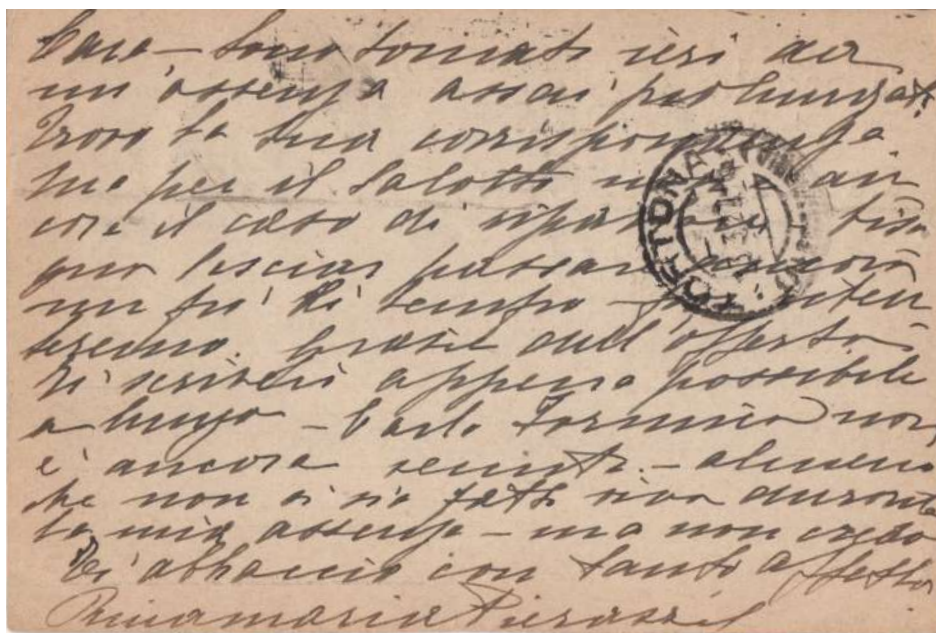 Cara - Sono tornata ieri da
un'assenza assai prolungata.
Trovo la tua corrispondenza
ma per il salotto non è an
cora il caso di riparlare biso
gna lasciar passare ancora
un po' di tempo - poi riten
teremo. Grazie dell'offerta.
Ti scriverò appena possibile
a lungo - Carlo Formino non
è ancora venuto - almeno
che non si sia fatto vivo durante
la mia assenza - ma non credo
Ti abbraccio con tanto affetto
Rinamaria Pierazzi
CORTONA